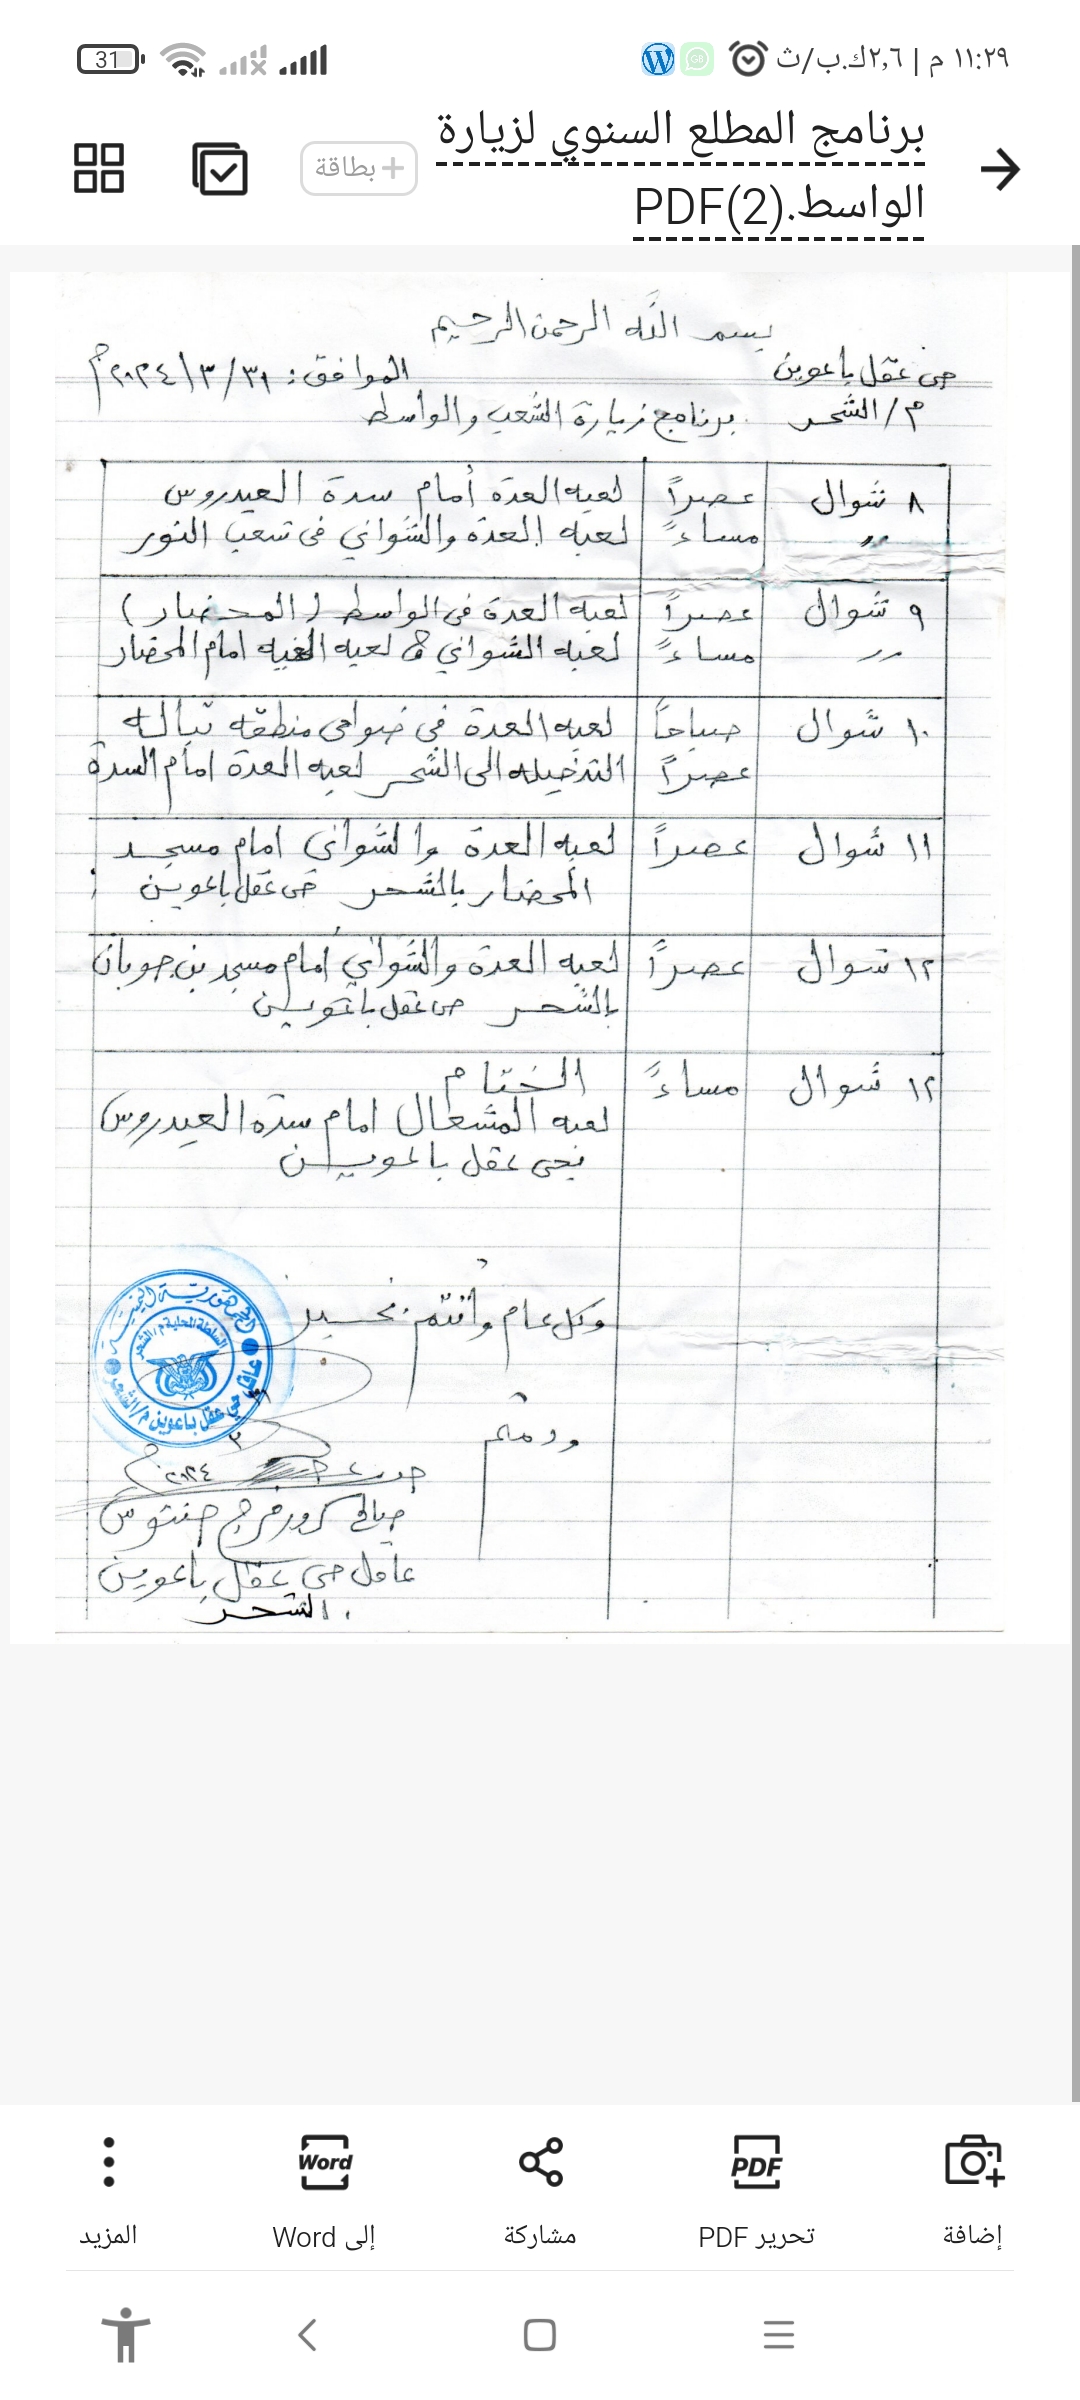 ١١:٢٩ م | ٢,٦ك.ب/ث
31
برنامج المطلع السنوي لزيارة
الواسط.PDF(2)
+ بطاقة
بسم الله الرحمن الرحيم
حي عقل باعوين
الموافق: ٣١/٣/٢٠٢٤م
م/الشحر
برنامج زيارة الشعب والواسط
٨ شوال عصراً لعبه العدة أمام سدة العيدروس
〃 مساءً لعبه العدة والشواني في شعب النور
٩ شوال عصراً لعبه العدة في الواسط (المحضار)
〃 مساءً لعبه الشواني و لعبه الغيه امام المحضار
١٠ شوال صباحاً لعبه العدة في ضواحي منطقه تباله
عصراً التدخيله الى الشحر لعبه العدة امام السدة
١١ شوال عصراً لعبه العدة والشواني امام مسجد
المحضار بالشحر حي عقل باعوين
١٢ شوال عصراً لعبه العدة والشواني امام مسجد بن جوبان
بالشحر حي عقل باعوين
١٢ شوال مساءً الختام
لعبه المشعال امام سدة العيدروس
بحي عقل باعوين
وكل عام وأنتم بخير
ودمتم
الجمهورية اليمنية
السلطة المحلية م/الشحر
عاقل حي عقل باعوين م/الشحر
٣١
٣
٢٠٢٤م
عاقل حي عقل باعوين
الشحر
إضافة
تحرير PDF
مشاركة
Word
PDF
إلى Word
المزيد